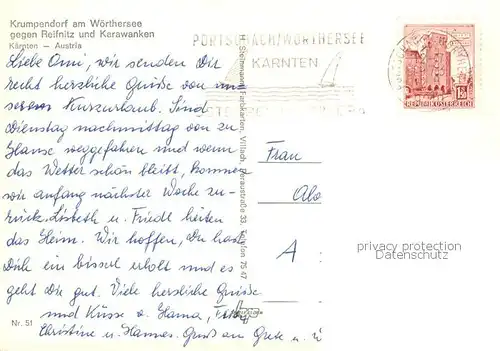 Krumpendorf am Wörthersee
gegen Reifnitz und Karawanken
Kärnten – Austria
Liebe Omi, wir senden Dir
recht herzliche Grüsse von
unserem Kurzurlaub. Sind
Dienstag nachmittag von zu
Hause weggefahren und wenn
das Wetter schön bleibt, kommen
wir anfang nächster Woche zu-
rück. Lisbeth u. Friedl heiten
das Heim. Wir hoffen, Du hast
Dich ein bisserl erholt und es
geht Dir gut. Viele herzliche Grüsse
und Küsse v. Hama,
Christine u. Hannes. Gruß an Grete u.
Nr. 51
Farbkarten, Villach, Peraustraße 33, Telefon 75 47
PÖRTSCHACH/WÖRTHERSEE
KÄRNTEN
1.50
REPUBLIK ÖSTERREICH
Frau
Alo
A
privacy protection
Datenschutz